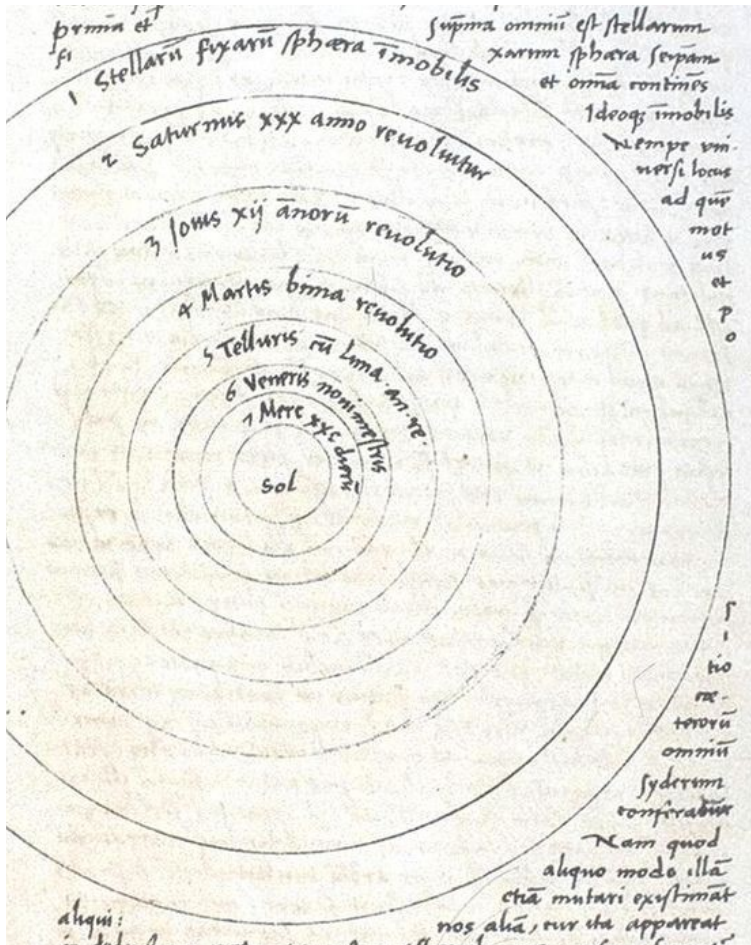 prima et suprema omniũ est stellarum
fi xarum sphæra seipsam
1 Stellarũ fixarũ sphæra ĩmobilis
et omĩa continẽs
Ideoqꝫ ĩmobilis
Nempe vni-
versi locus
ad quẽ
mot
us
et
p
o
2 Saturnus xxx anno revoluitur
3 Iovis xij ãnorũ revolutio
4 Martis bima revolutio
5 Telluris cũ Luna. an. re.
6 Veneris nonimestris
7 Merc xxc dierũ
Sol
s
i
tio
cæ-
terorũ
omniũ
syderum
conferatur
Nam quod
aliquo modo illã
etiã mutari existimãt
aliqui: nos aliã, cur ita appareat